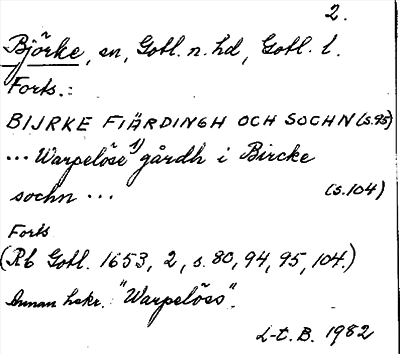 2.
Björke, sn, Gotl. n. hd, Gotl. l.
Forts.:
BIJRKE FIÄRDINGH OCH SOCHN (s.95)
... Warpelöse 1) gårdh i Bircke
sochn ... (s.104)
Forts
(Rb Gotl. 1653, 2, s. 80, 94, 95, 104.)
Annan hskr. "Warpelöss".
L-t. B. 1982